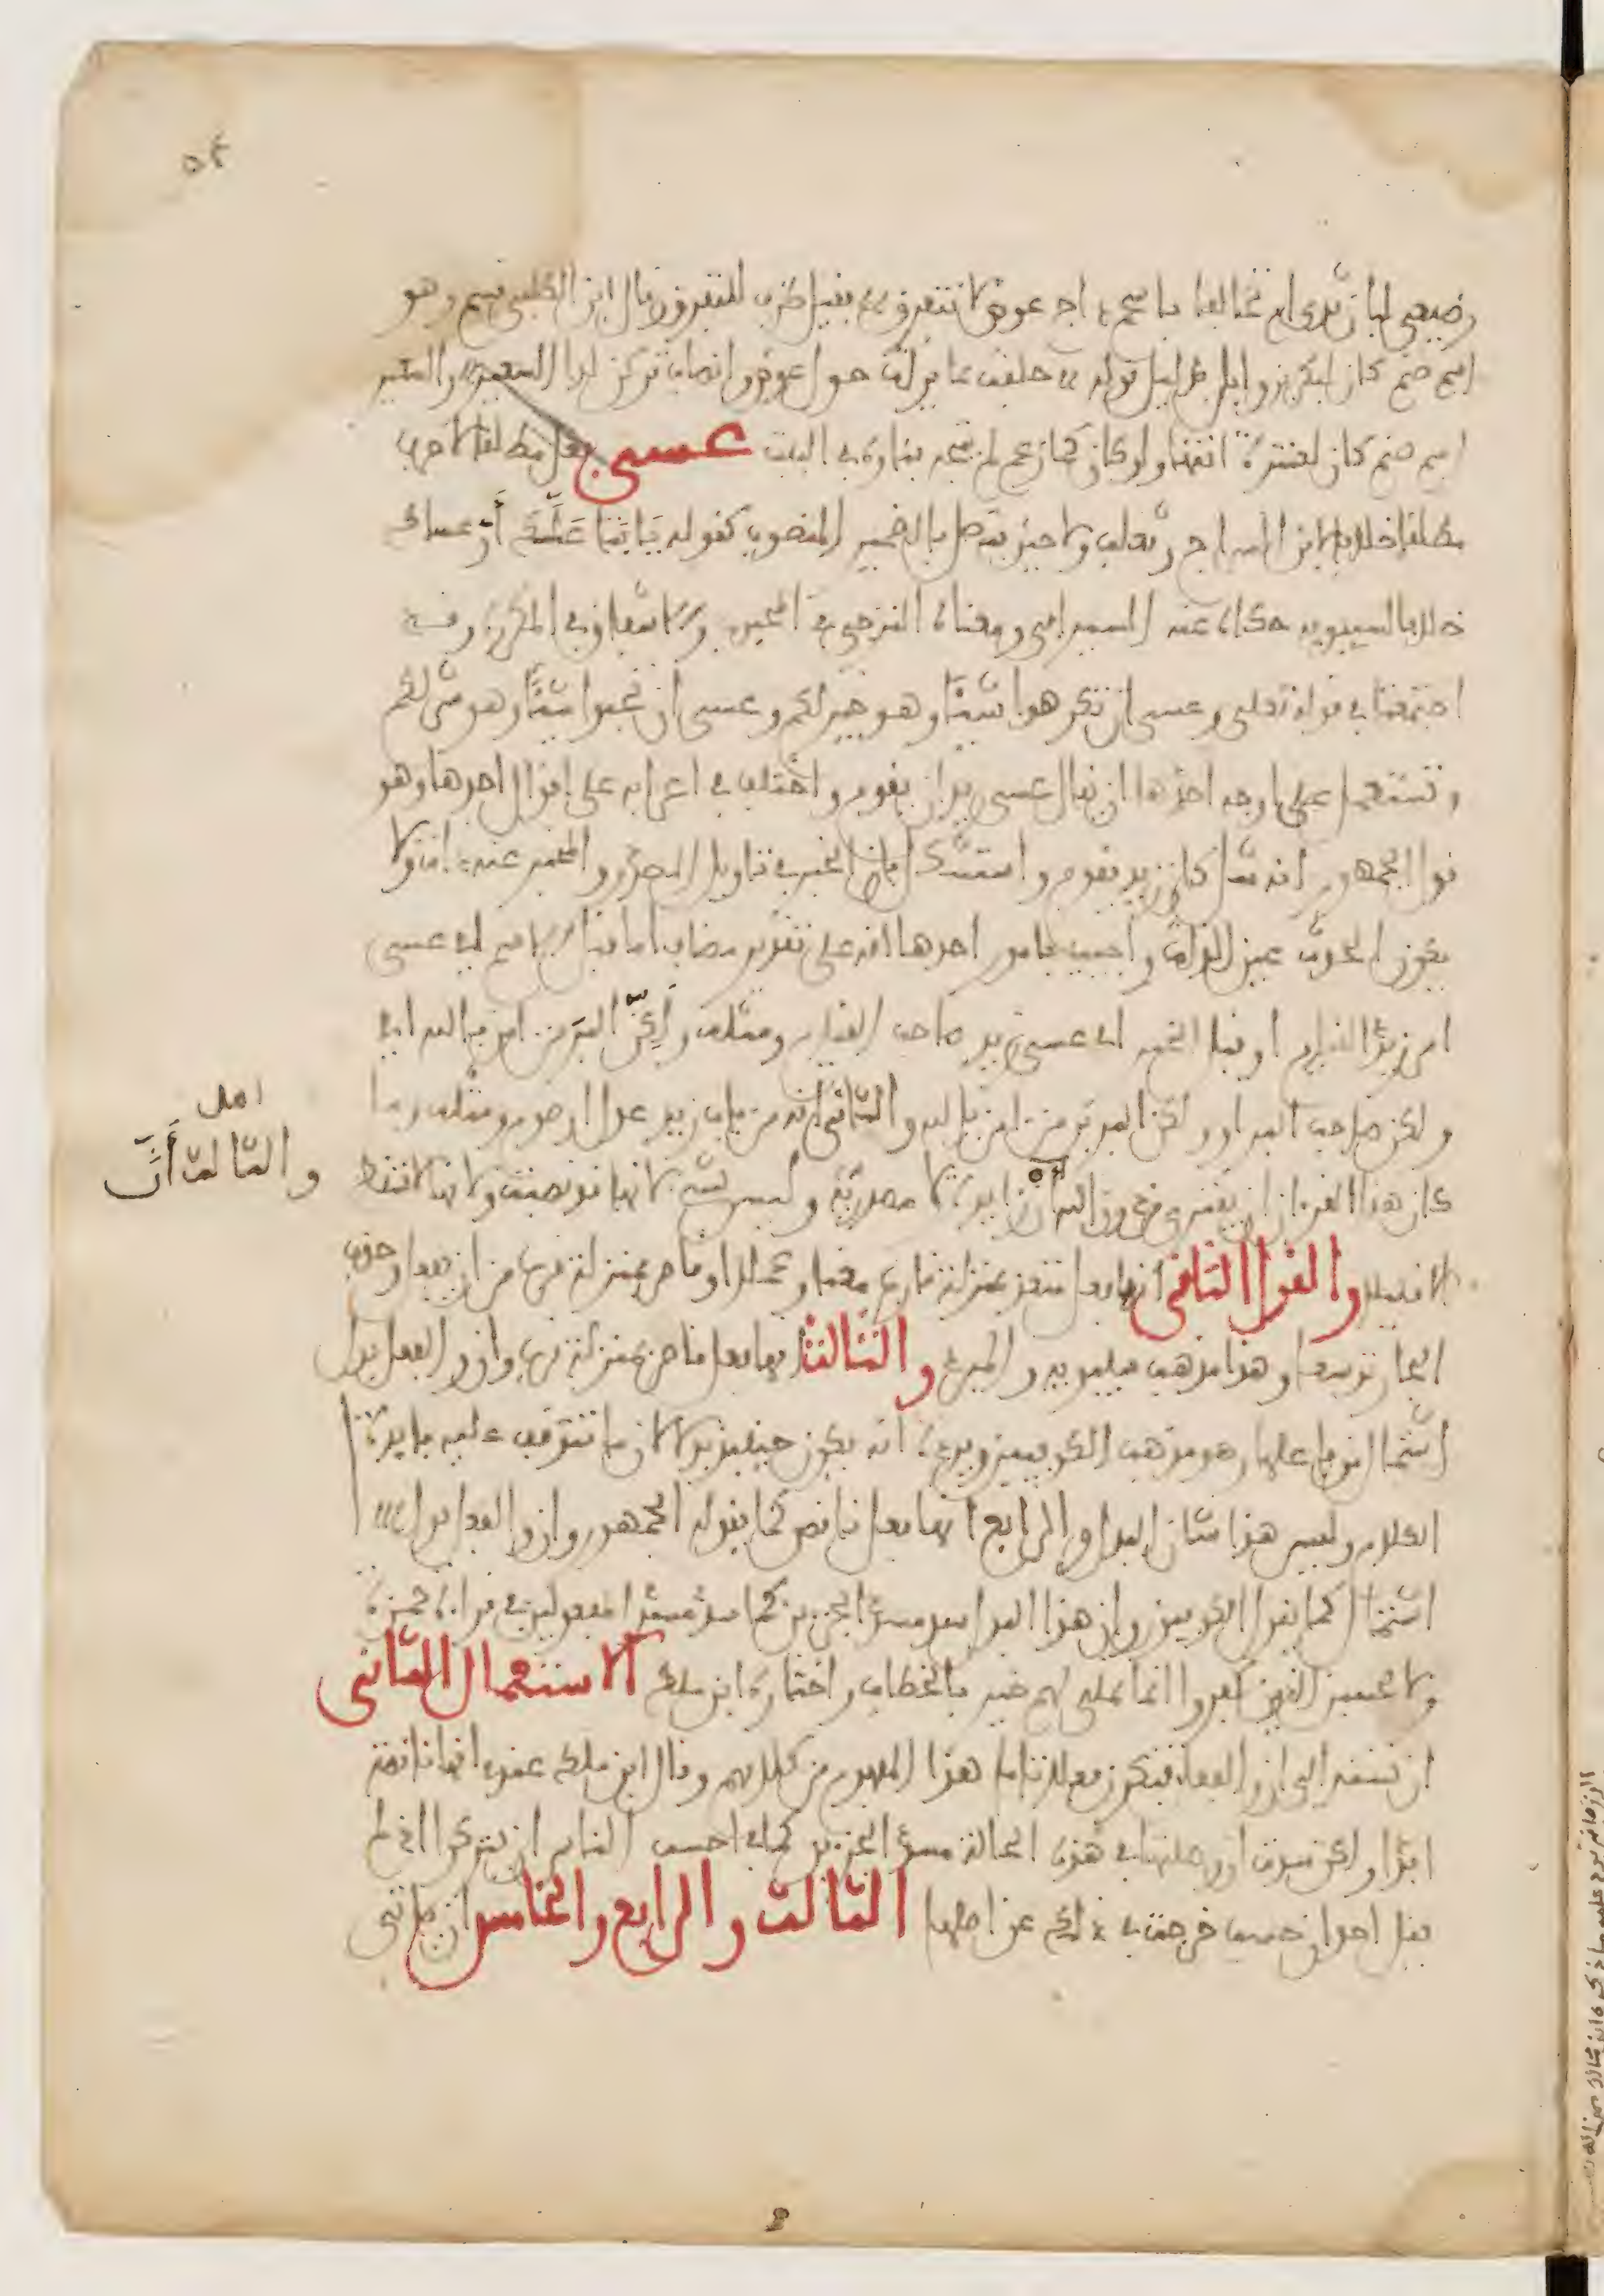 ٥٤
رضيعي لبان ثدي ام تحالفا باسحم داج عوض لا نتفرق فقيل ظرف لنتفرق وقال ابن الكلبي قسم وهو
اسم صنم كان لبكر بن وايل بدليل قوله حلفت بمايرات حول عوض وانصاب تركن لدا السعير والسعير
اسم صنم كان لعنترة انتهى ولو كان كما زعم لم يتجه بناوه في البيت عسى فعل مطلقا لا حرف
مطلقا خلافا لابن السراج وثعلب ولا حين يتصل بالضمير المنصوب كقوله يا ابتا علك أو عساك
خلافا لسيبويه حكاه عنه السيرافي ومعناه الترجي في المحبوب والاشفاق في المكروه وقد
اجتمعتا في قوله تعلى وعسى ان تكرهوا شيئا وهو خير لكم وعسى ان تحبوا شيئا وهو شر لكم
وتستعمل على اوجه احدها ان يقال عسى زيد ان يقوم واختلف في اعرابه على اقوال احدها وهو
قول الجمهور انه مثل كان زيد يقوم واستشكل بان الخبر في تاويل المصدر والمخبر عنه ذات ولا
يكون الحدث عين الذات واجيب بامور احدها انه على تقدير مضاف اما قبل الاسم اي عسى
امر زيد القيام او قبل الخبر اي عسى زيد صاحب القيام ومثله ولكن البر من امن بالله اي
ولكن صاحب البر او ولكن البر بر من امن بالله والثاني انه من باب زيد عدل او صوم ومثله وما
كان هذا القرءان ان يفترى من دون الله أن زايدة لا مصدرية وليس بشيء لانها قد نصبت ولانها لا تسقط
اصل
والثالث أنّ
الا قليلا والقول الثاني انها فعل متعد بمنزلة قارب معنى وعملا او قاصر بمنزلة قرب من ان يفعل وحذف
الجار توسعا وهذا مذهب سيبويه والمبرد والثالث انها فعل قاصر بمنزلة قرب وان والفعل بدل
اشتمال من فاعلها وهو مذهب الكوفيين ويرده انه يكون حينئذ بدلا لازما تتوقف عليه فايدة
الكلام وليس هذا شان البدل والرابع انها فعل ناقص كما يقول الجمهور وان والفعل بدل
اشتمال كما يقول الكوفيون وان هذا البدل سد مسد الجزءين كما سد مسد المفعولين في قراءة حمزة
ولا تحسبن الذين كفروا انما نملي لهم خير بالخطاب واختاره ابن ملك الاستعمال الثاني
ان تسند الى ان والفعل فتكون فعلا تاما هذا المفهوم من كلامهم وقال ابن ملك عندي انها ناقصة
ابدا ولكن سدت ان وصلتها في هذه الحالة مسد الجزءين كما في احسب الناس ان يتركوا اذ لم
يقل احد ان حسب خرجت في ذلك عن اصلها الثالث والرابع والخامس ان ياتي